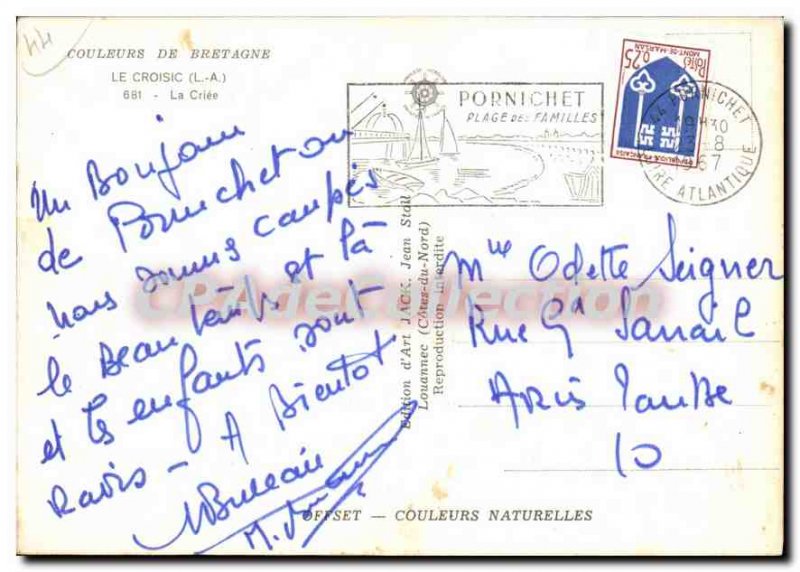 44
COULEURS DE BRETAGNE
LE CROISIC (L.-A.)
681 - La Criée
Un Bonjour
de Pornichet ou
nous sommes campés
le Beau temps est là
et les enfants sont
ravis - A Bientot
PORNICHET
PLAGE DES FAMILLES
0,25
POSTES
MONT-DE-MARSAN
REPUBLIQUE FRANÇAISE
44 PORNICHET
-8
1967
LOIRE ATLANTIQUE
Edition d'Art JACK. Jean Stall
Louannec (Côtes-du-Nord)
Reproduction interdite
Mme Odette Seigner
Rue Gal Sarrail
Arcis s/ Aube
10
OFFSET — COULEURS NATURELLES
CPAdeCollection